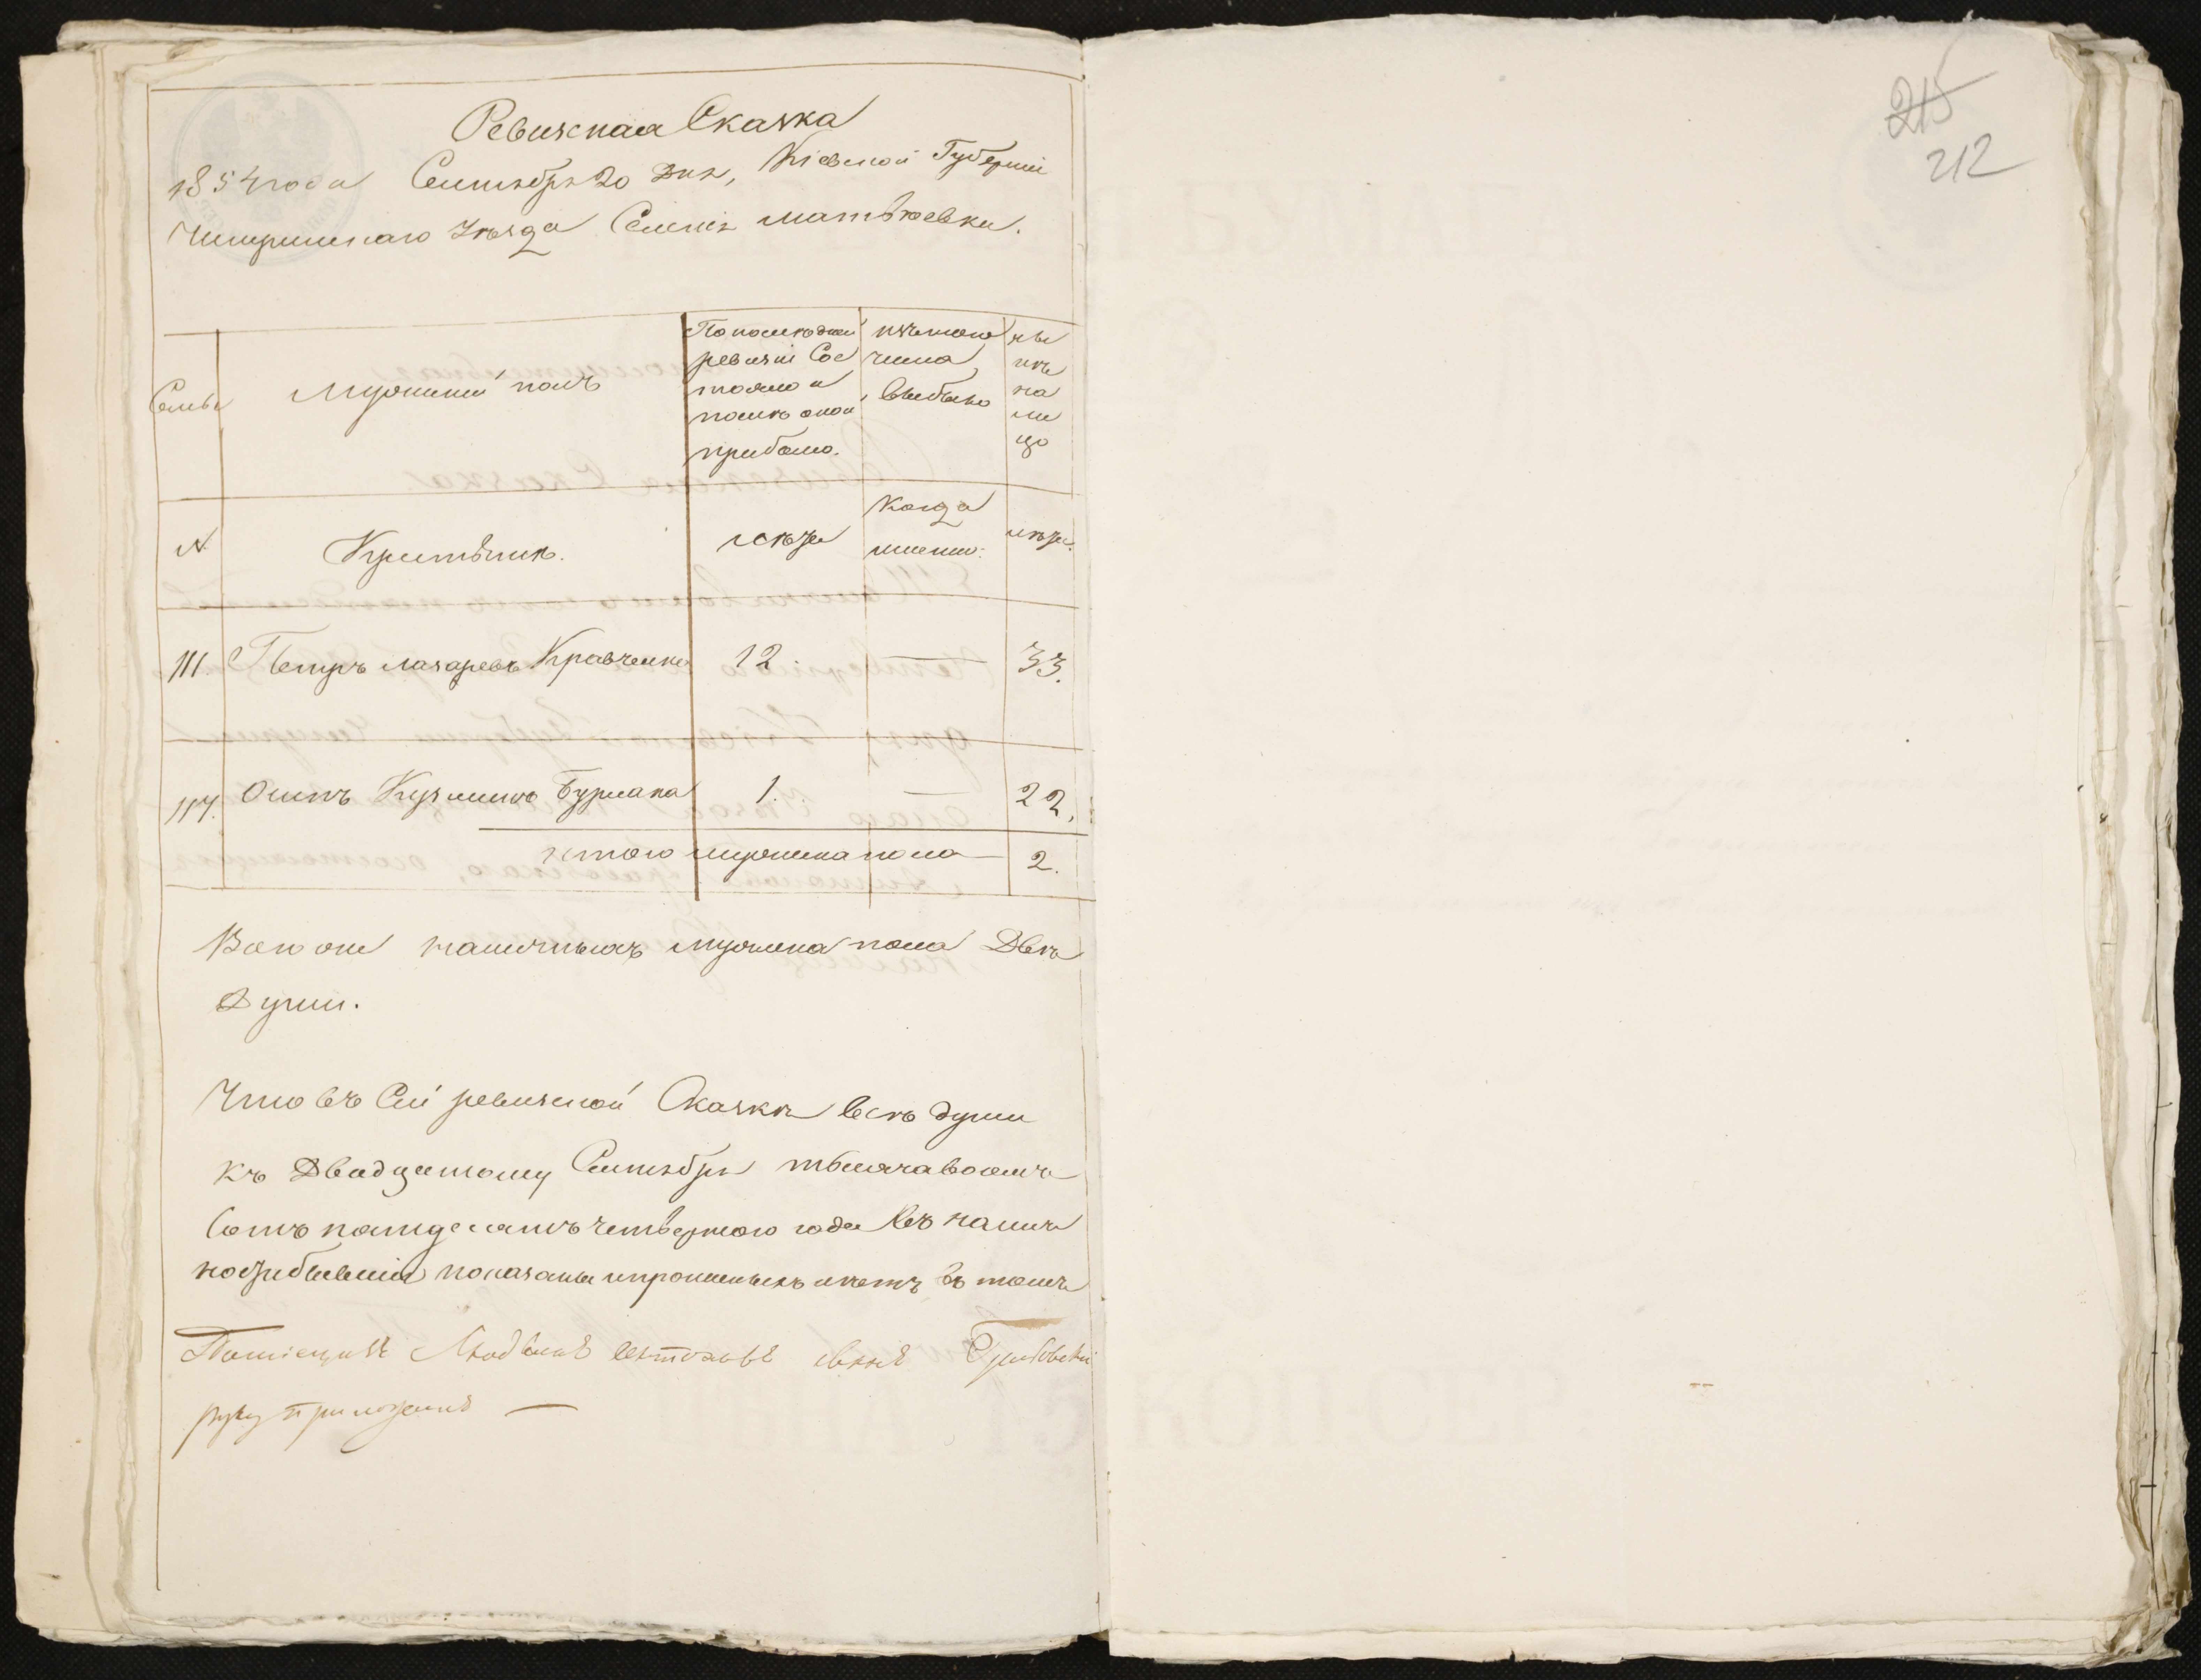 Ревизская Сказка
1854 года Сентября 20 дня, Кіевской Губерніи
Чигиринскаго Уѣзда Селенія Матвѣевки.
Семьи
Мужескій полъ
По послѣдней
ревизіи Сос
тояло и
послѣ оной
прибыло.
изъ того
числа
выбыло
ны
нѣ
на
ли
цо
№
Крестьянъ.
лѣта
Когда
именно.
лѣта.
111. Петръ Лазаревъ Кравченко 12. — 33.
Осипъ Кузминъ Бурлака 1. — 22.
Итого мужеска пола — 2.
наличныхъ мужеска пола Двѣ
Души.
Что въ сей ревизской Сказкѣ всѣ души
къ Двадцатому Сентября тысяча восемь
сотъ пятдесятъ четвертого года въ налич
показаны и прописныхъ нѣтъ въ томъ
Помещикъ сынъ
руку приложилъ —
215
212